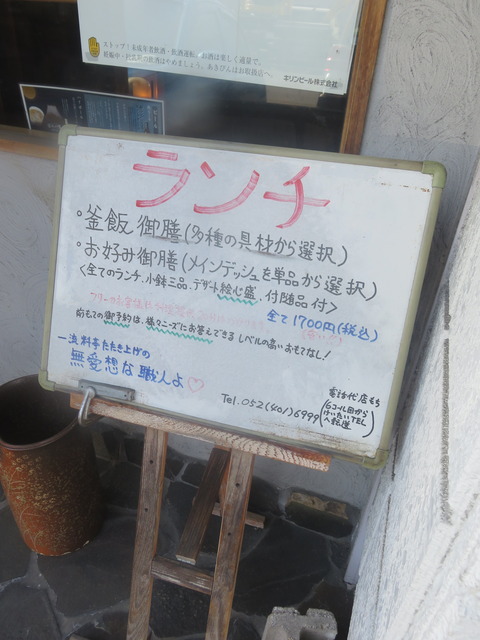 ストップ!未成年者飲酒・飲酒運転。お酒は楽しく適量で。
妊娠中・授乳期の飲酒はやめましょう。あきびんはお取扱店へ。
キリンビール株式会社
ランチ
・釜飯御膳(多種の具材から選択)
・お好み御膳(メインデッシュを単品から選択)
<全てのランチ、小鉢三品、デザート絵心盛、付随品付>
全て1700円(税込)
(安い!)
前もっての御予約は、様々ニーズにお答えできるレベルの高いおもてなし!
一流料亭たたき上げの
無愛想な職人よ♡
Tel.052(401)6999
電話代店もち
6コール目から
けいたいTEL
へ転送